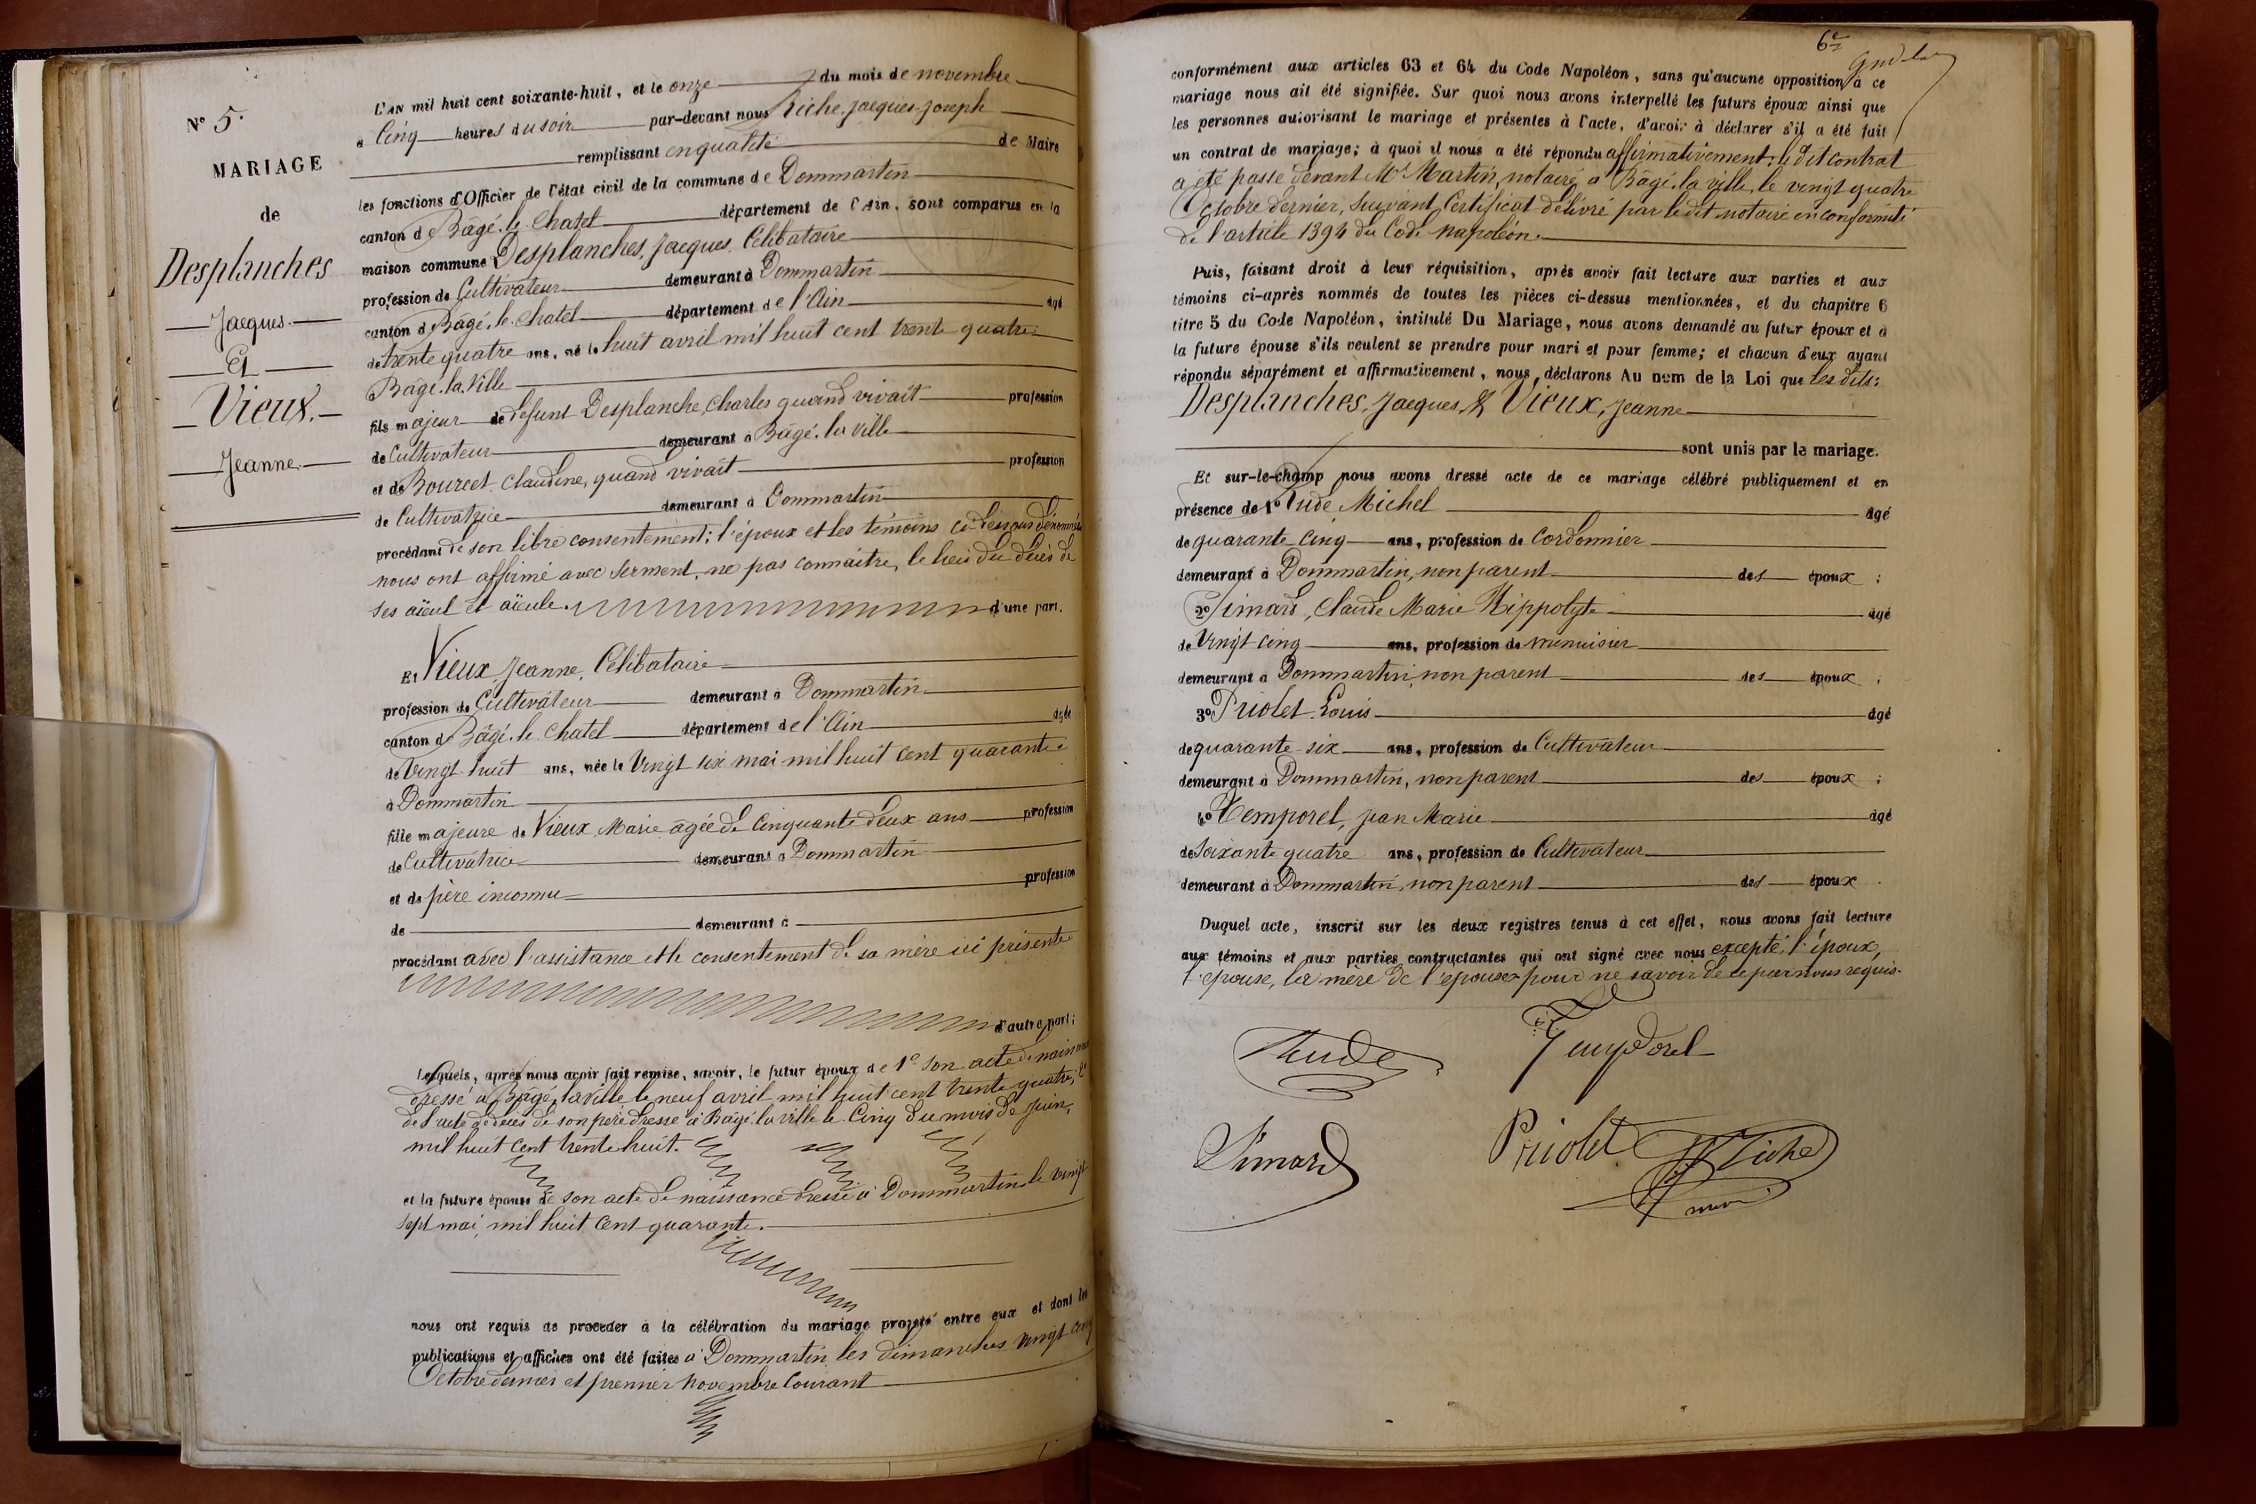 N° 5.
MARIAGE
de
Desplanches
Jacques.
Et
Vieux.
Jeanne.
L'AN mil huit cent soixante-huit, et le onze du mois de novembre
à Cinq heures du soir par-devant nous Riche, Jacques-Joseph
remplissant en qualité de Maire
les fonctions d'Officier de l'état civil de la commune de Dommartin
canton de Bâgé-le-Chatel département de l'Ain, sont comparus en la
maison commune Desplanches, Jacques, Célibataire
profession de Cultivateur demeurant à Dommartin
canton de Bâgé-le-Chatel département de l'Ain âgé
de trente quatre ans, né le huit avril mil huit cent trente quatre
Bâgé-la-Ville
fils majeur de défunt Desplanche, Charles quand vivait profession
de Cultivateur demeurant à Bâgé-la-Ville
et de Bourcet Claudine, quand vivait profession
de Cultivatrice demeurant à Dommartin
procédant de son libre consentement; l'époux et les témoins ci-dessous dénommés
nous ont affirmé avec serment, ne pas connaître, le lieu du décès de
ses aïeul et aïeule. d'une part.
Et Vieux, Jeanne, Célibataire
profession de Cultivateur demeurant à Dommartin
canton de Bâgé-le-Chatel département de l'Ain âgée
de Vingt huit ans, née le Vingt six mai mil huit cent quarante
à Dommartin
fille majeure de Vieux, Marie âgée de Cinquante deux ans profession
de Cultivatrice demeurant à Dommartin
et de père inconnu profession
de demeurant à
procédant avec l'assistance et le consentement de sa mère ici présente
d'autre part;
Lesquels, après nous avoir fait remise, savoir, le futur époux de 1° son acte de naissance
dressé à Bâgé-la-Ville le neuf avril mil huit cent trente quatre; 2°
de l'acte de décès de son père dressé à Bâgé-la-Ville le Cinq du mois de juin,
mil huit cent trente huit.
et la future épouse de son acte de naissance dressé à Dommartin le vingt
sept mai, mil huit cent quarante.
nous ont requis de procéder à la célébration du mariage projeté entre eux et dont les
publications et affiches ont été faites à Dommartin les dimanches vingt cinq
Octobre dernier et premier novembre Courant
6e
conformément aux articles 63 et 64 du Code Napoléon, sans qu'aucune opposition à ce
mariage nous ait été signifiée. Sur quoi nous avons interpellé les futurs époux ainsi que
les personnes autorisant le mariage et présentes à l'acte, d'avoir à déclarer s'il a été fait
un contrat de mariage; à quoi il nous a été répondu affirmativement: le dit contrat
a été passé devant Me Martin, notaire, à Bâgé-la-Ville, le vingt quatre
Octobre dernier, Suivant Certificat délivré par le dit notaire en conformité
de l'article 1394 du Code napoléon.
Puis, faisant droit à leur réquisition, après avoir fait lecture aux parties et aux
témoins ci-après nommés de toutes les pièces ci-dessus mentionnées, et du chapitre 6
titre 5 du Code Napoléon, intitulé Du Mariage, nous avons demandé au futur époux et à
la future épouse s'ils veulent se prendre pour mari et pour femme; et chacun d'eux ayant
répondu séparément et affirmativement, nous, déclarons Au nom de la Loi que les dits:
Desplanches, Jacques, & Vieux, Jeanne
sont unis par le mariage.
Et sur-le-champ nous avons dressé acte de ce mariage célébré publiquement et en
présence de 1° Rude Michel âgé
de quarante cinq ans, profession de Cordonnier
demeurant à Dommartin, non parent des époux;
2° Simard, Claude Marie Hippolyte âgé
de Vingt cinq ans, profession de menuisier
demeurant à Dommartin, non parent des époux;
3° Priolet Louis âgé
de quarante six ans, profession de Cultivateur
demeurant à Dommartin, non parent des époux;
4° Temporel, Jean Marie âgé
de soixante quatre ans, profession de Cultivateur
demeurant à Dommartin, non parent des époux.
Duquel acte, inscrit sur les deux registres tenus à cet effet, nous avons fait lecture
aux témoins et aux parties contractantes qui ont signé avec nous excepté, l'époux,
l'épouse, la mère de l'épouse pour ne savoir de ce par nous requis.
Rude Temporel
Simard Priolet Riche